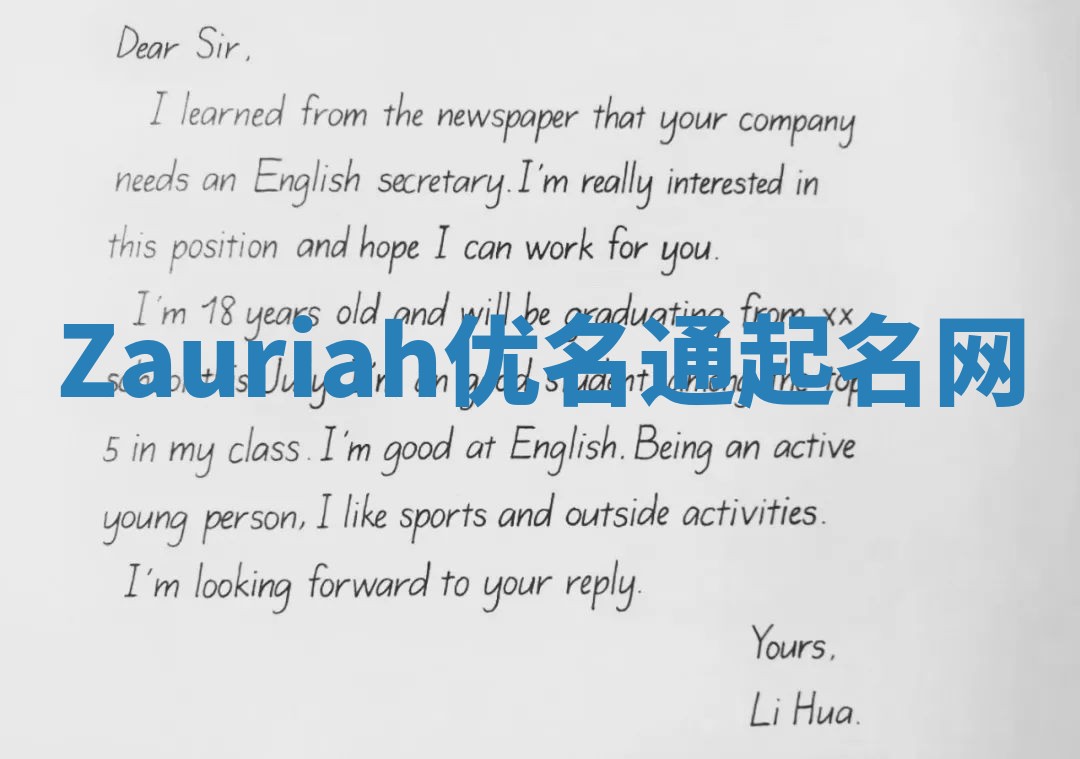 Dear Sir,
I learned from the newspaper that your company
needs an English secretary. I'm really interested in
this position and hope I can work for you.
I'm 18 years old and will be graduating from xx
Zauriah优名通起名网
school this July. I'm an good student, among the top
5 in my class. I'm good at English. Being an active
young person, I like sports and outside activities.
I'm looking forward to your reply.
Yours,
Li Hua.